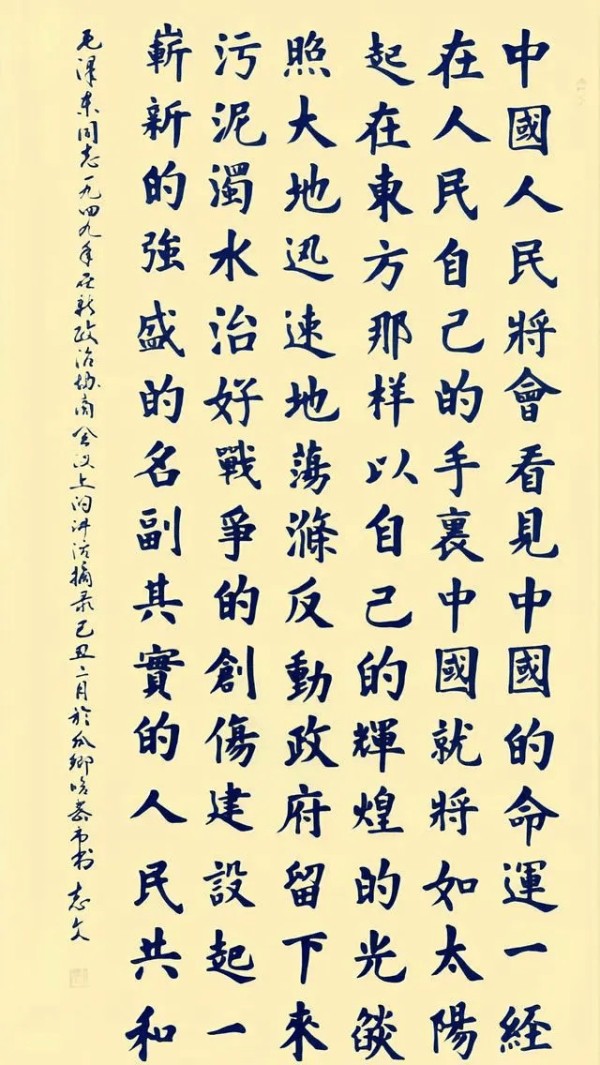 中國人民將會看見中國的命運一經
在人民自己的手裏中國就將如太陽
起在東方那样以自己的輝煌的光燄
照大地迅速地蕩滌反動政府留下來
污泥濁水治好戰爭的創傷建設起一
嶄新的強盛的名副其實的人民共和
毛泽东同志一九四九年在新政治协商会议上的讲话摘录己丑二月於 志文